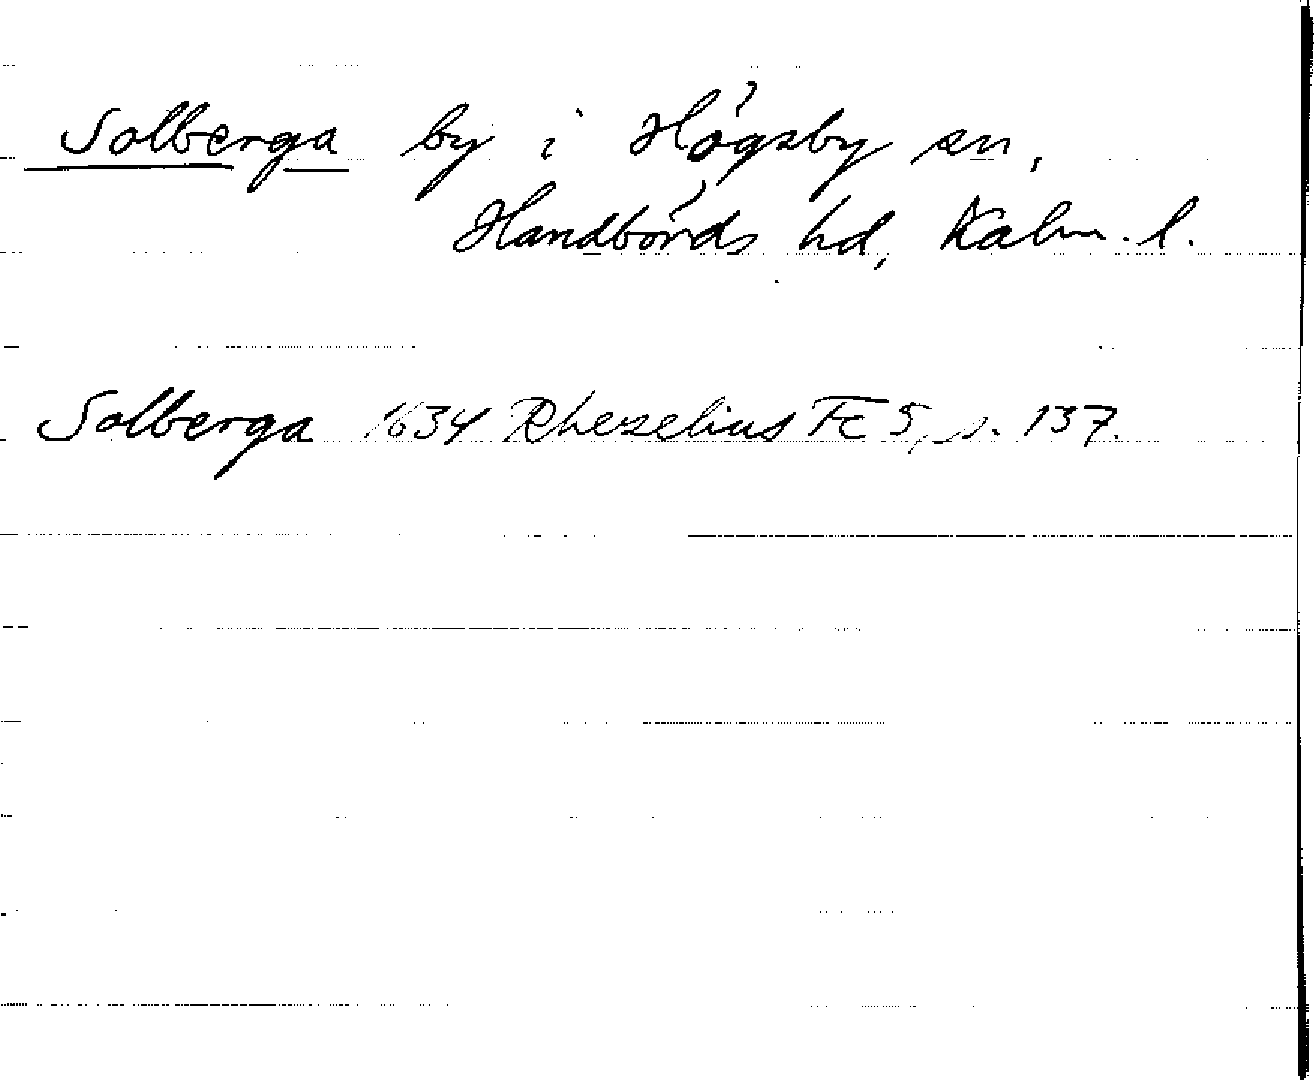 Solberga by i Högsby sn,
Handbörds hd, Kalm. l.
Solberga 1634 Rhezelius Fc 5, s. 137.